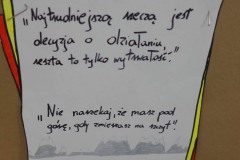 „Najtrudniejszą rzeczą jest
decyzja o działaniu,
reszta to tylko wytrwałość."
„Nie narzekaj, że masz pod
górę, gdy zmierzasz na szczyt."